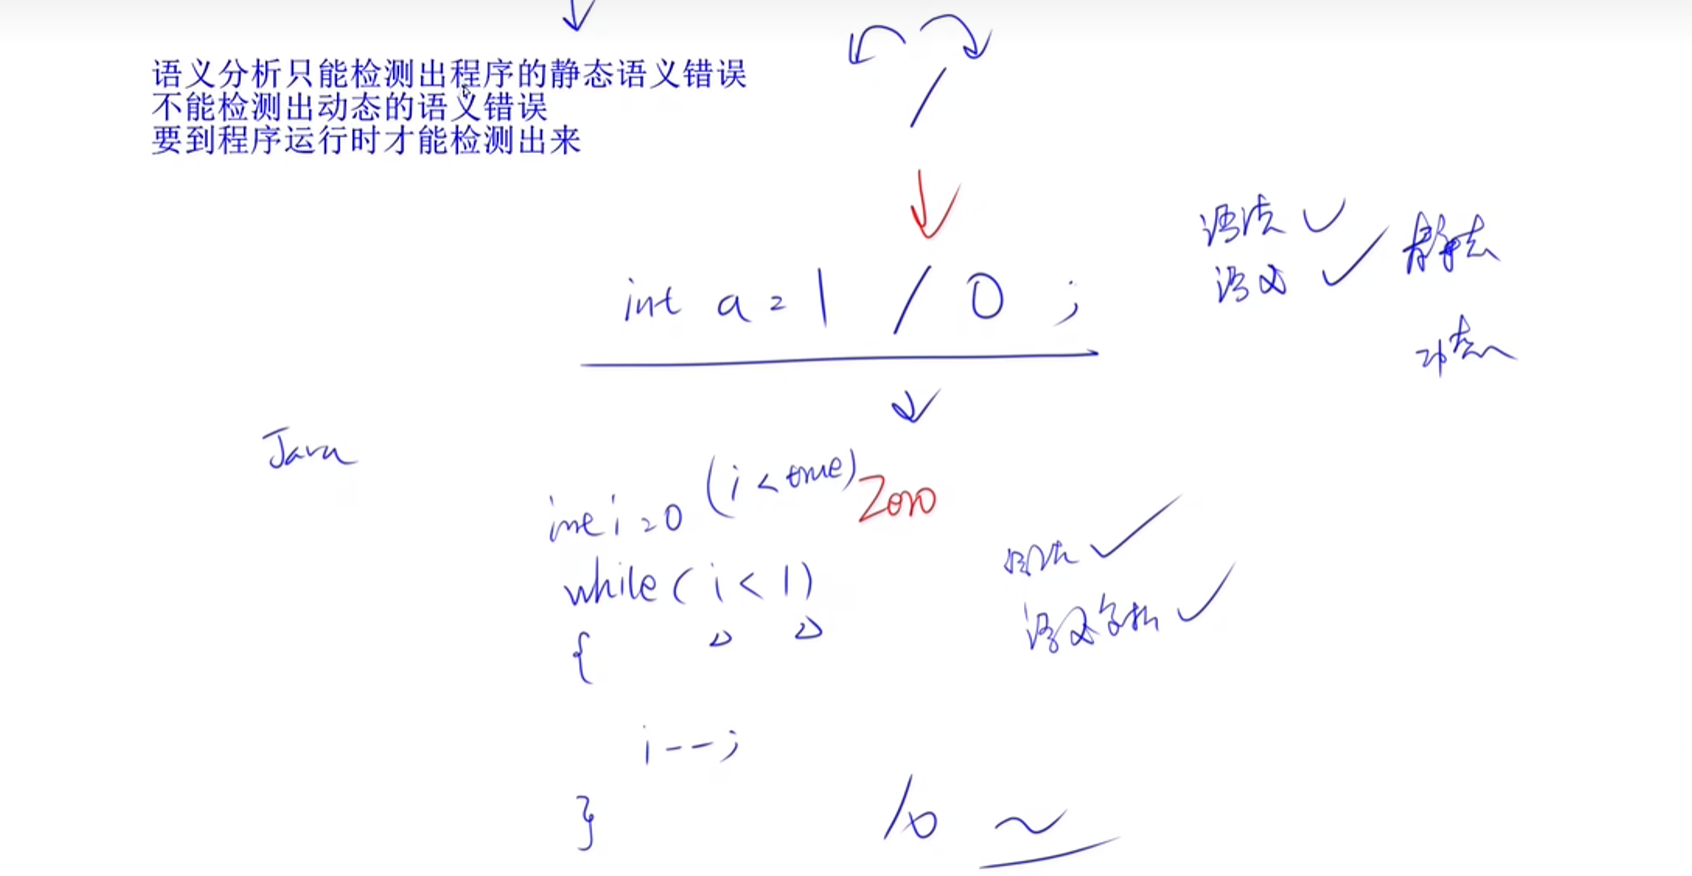 语义分析只能检测出程序的静态语义错误
不能检测出动态的语义错误
要到程序运行时才能检测出来
/
int a = 1 / 0 ;
语法 ✓
语义 ✓ 静态
动态
Java
(i < true)
int i = 0
Zero
while ( i < 1 )
{
语法 ✓
语义分析 ✓
i--;
}
/0 ~